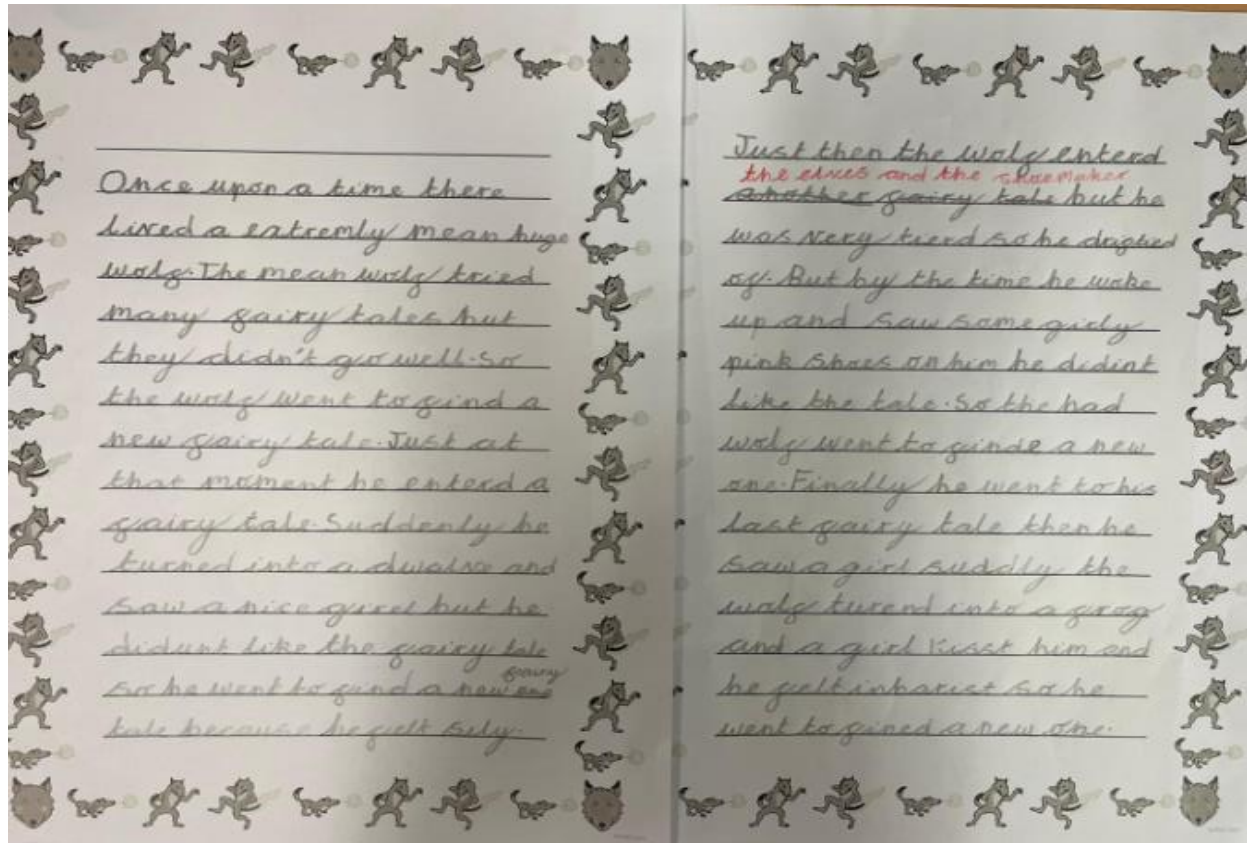 Once upon a time there
lived a extremly mean huge
wolf. The mean wolf tried
many fairy tales but
they didn't go well. So
the wolf went to find a
new fairy tale. Just at
that moment he enterd a
fairy tale. Suddenly he
turned into a dwalve and
saw a nice girel but he
didunt like the fairy tale
fairy
so he went to find a new one
tale because he felt sily.
Just then the wolf enterd
the elves and the shoemaker
another fairy tale but he
was very tierd so he drifted
of. But by the time he woke
up and saw some girly
pink shoes on him he didint
like the tale. So the bad
wolf went to finde a new
one. Finally he went to his
last fairy tale then he
saw a girl suddly the
wolf turend into a frog
and a girl kisst him and
he felt inbarist so he
went to fined a new one.